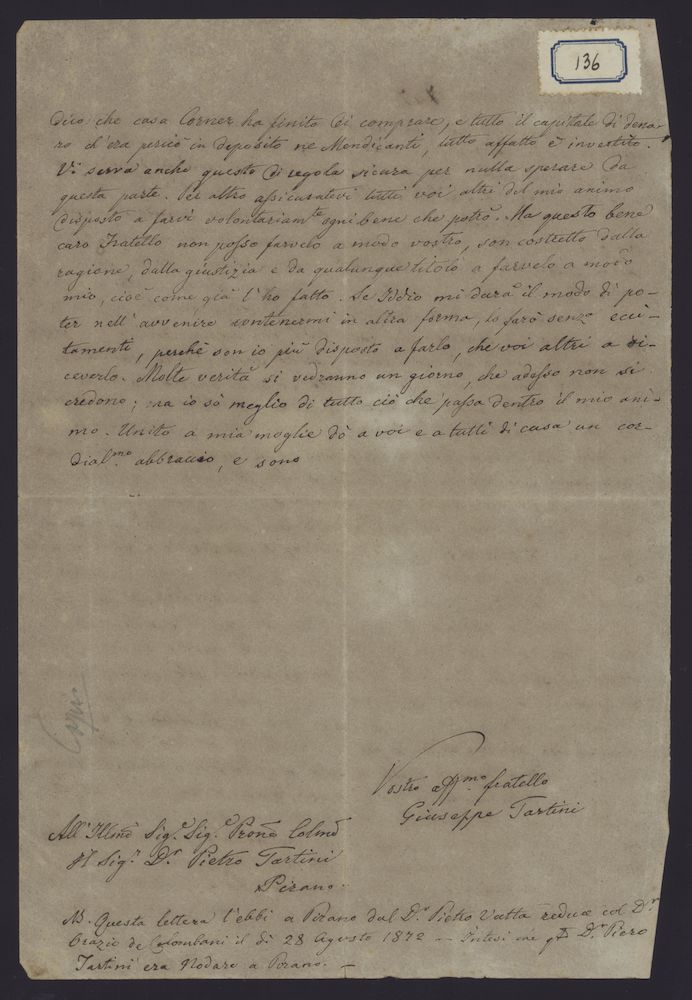 136
dico che casa Corner ha finito di comprare, e tutto il capitale di dena-
ro ch'era perciò in deposito ne Mendicanti, tutto affatto è investito.
Vi serva anche questo di regola sicura per nulla sperare da
questa parte. Per altro assicuratevi tutti voi altri del mio animo
disposto a farvi volontariam.te ogni bene che potrò. Ma questo bene
caro Fratello non posso farvelo a modo vostro, son costretto dalla
ragione, dalla giustizia e da qualunque titolo a farvelo a modo
mio, cioè come già l'ho fatto. Se Iddio mi darà il modo di po-
ter nell'avvenire contenermi in altra forma, lo farò senza ecci-
tamenti, perchè son io più disposto a farlo, che voi altri a ri-
ceverlo. Molte verità si vedranno un giorno, che adesso non si
credono; ma io sò meglio di tutto ciò che passa dentro il mio ani-
mo. Unito a mia moglie dò a voi e a tutti di casa un cor-
dial.mo abbraccio, e sono
Copia
Vostro aff.mo fratello
Giuseppe Tartini
All'Illmo Sig.r Sig.r Prone Colmo
Il Sig.r D.r Pietro Tartini
Pirano.
NB. Questa lettera l'ebbi a Pirano dal D.r Pietro Vatta redue col D.r
Orazio de Colombani il dì 28 Agosto 1872 — Intesi che D.r Piero
Tartini era Nodaro a Pirano. —